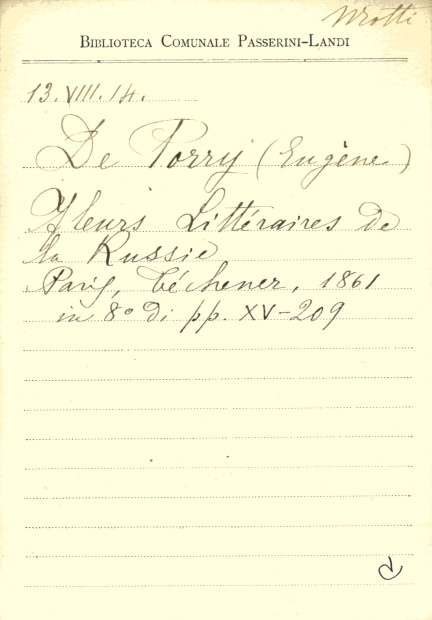 BIBLIOTECA COMUNALE PASSERINI-LANDI
13.VIII.14.
De Porry (Eugène)
Fleurs Littéraires de
la Russie
Paris, Téchener, 1861
in 8° di pp. XV-209